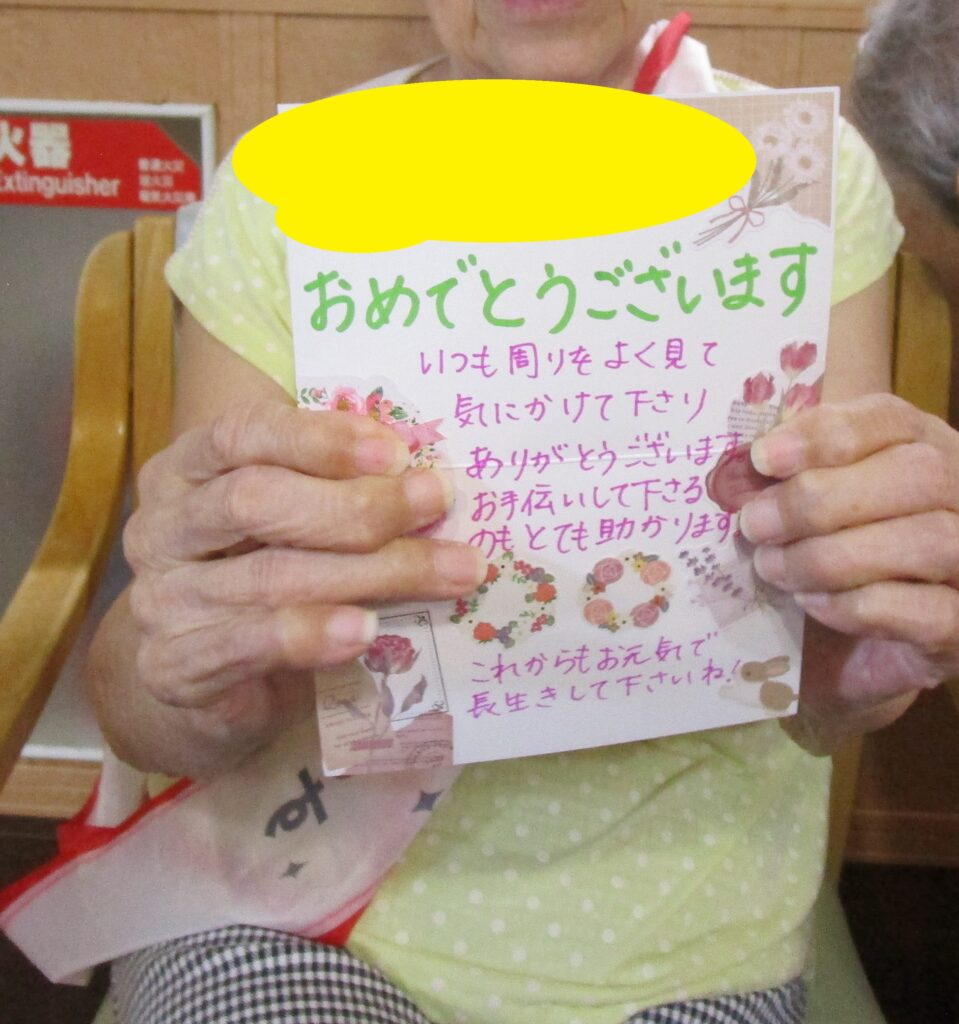 火器
Extinguisher
普通火災
電気火災用
おめでとうございます
いつも周りをよく見て
気にかけて下さり
ありがとうございます。
お手伝いして下さる
のもとても助かります。
これからもお元気で
長生きして下さいね!
す